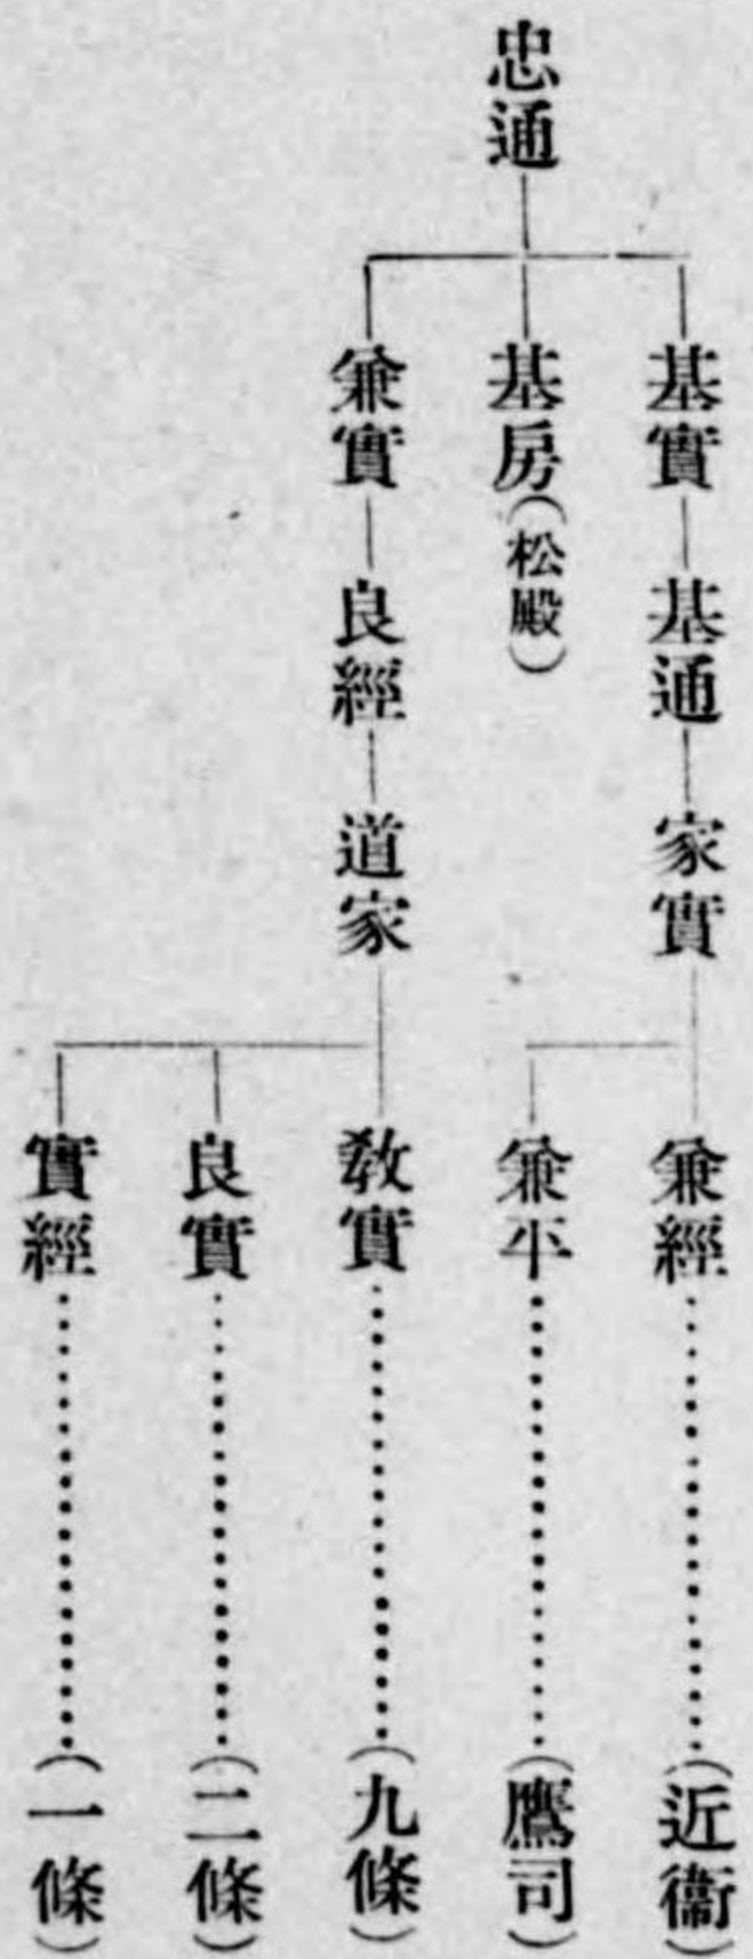 忠通
基實
基通
家實
兼經(近衞)
兼平(鷹司)
基房(松殿)
兼實
良經
道家
敎實(九條)
良實(二條)
實經(一條)